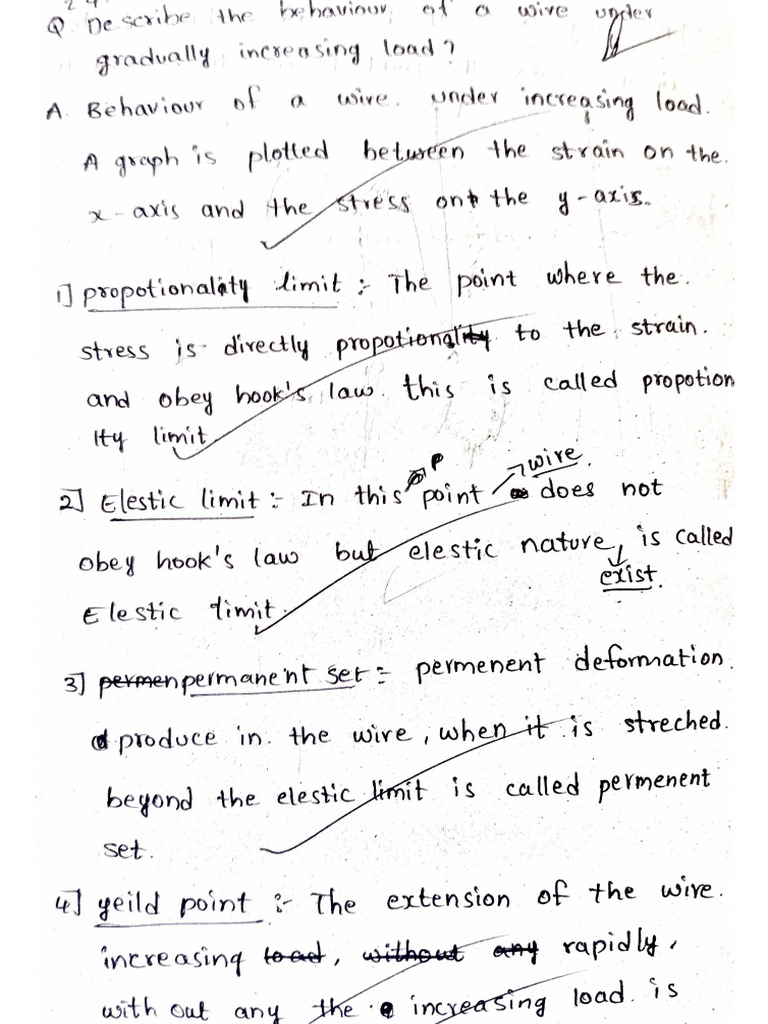 Q. Describe the behaviour of a wire under
gradually increasing load?
A. Behaviour of a wire. under increasing load.
A graph is plotted between the strain on the.
x-axis and the stress on the y-axis.
1] propotionality limit :- The point where the.
stress is directly propotionality to the strain.
and obey hook's law. this is called propotion
lty limit
2] Elestic limit :- In this point wire does not
obey hook's law but elestic nature exist. is called
Elestic limit.
3] permen permanent set :- permenent deformation.
produce in. the wire, when it is streched.
beyond the elestic limit is called permenent
set.
4] yeild point :- The extension of the wire.
increasing load, without any rapidly,
with out any the increasing load. is